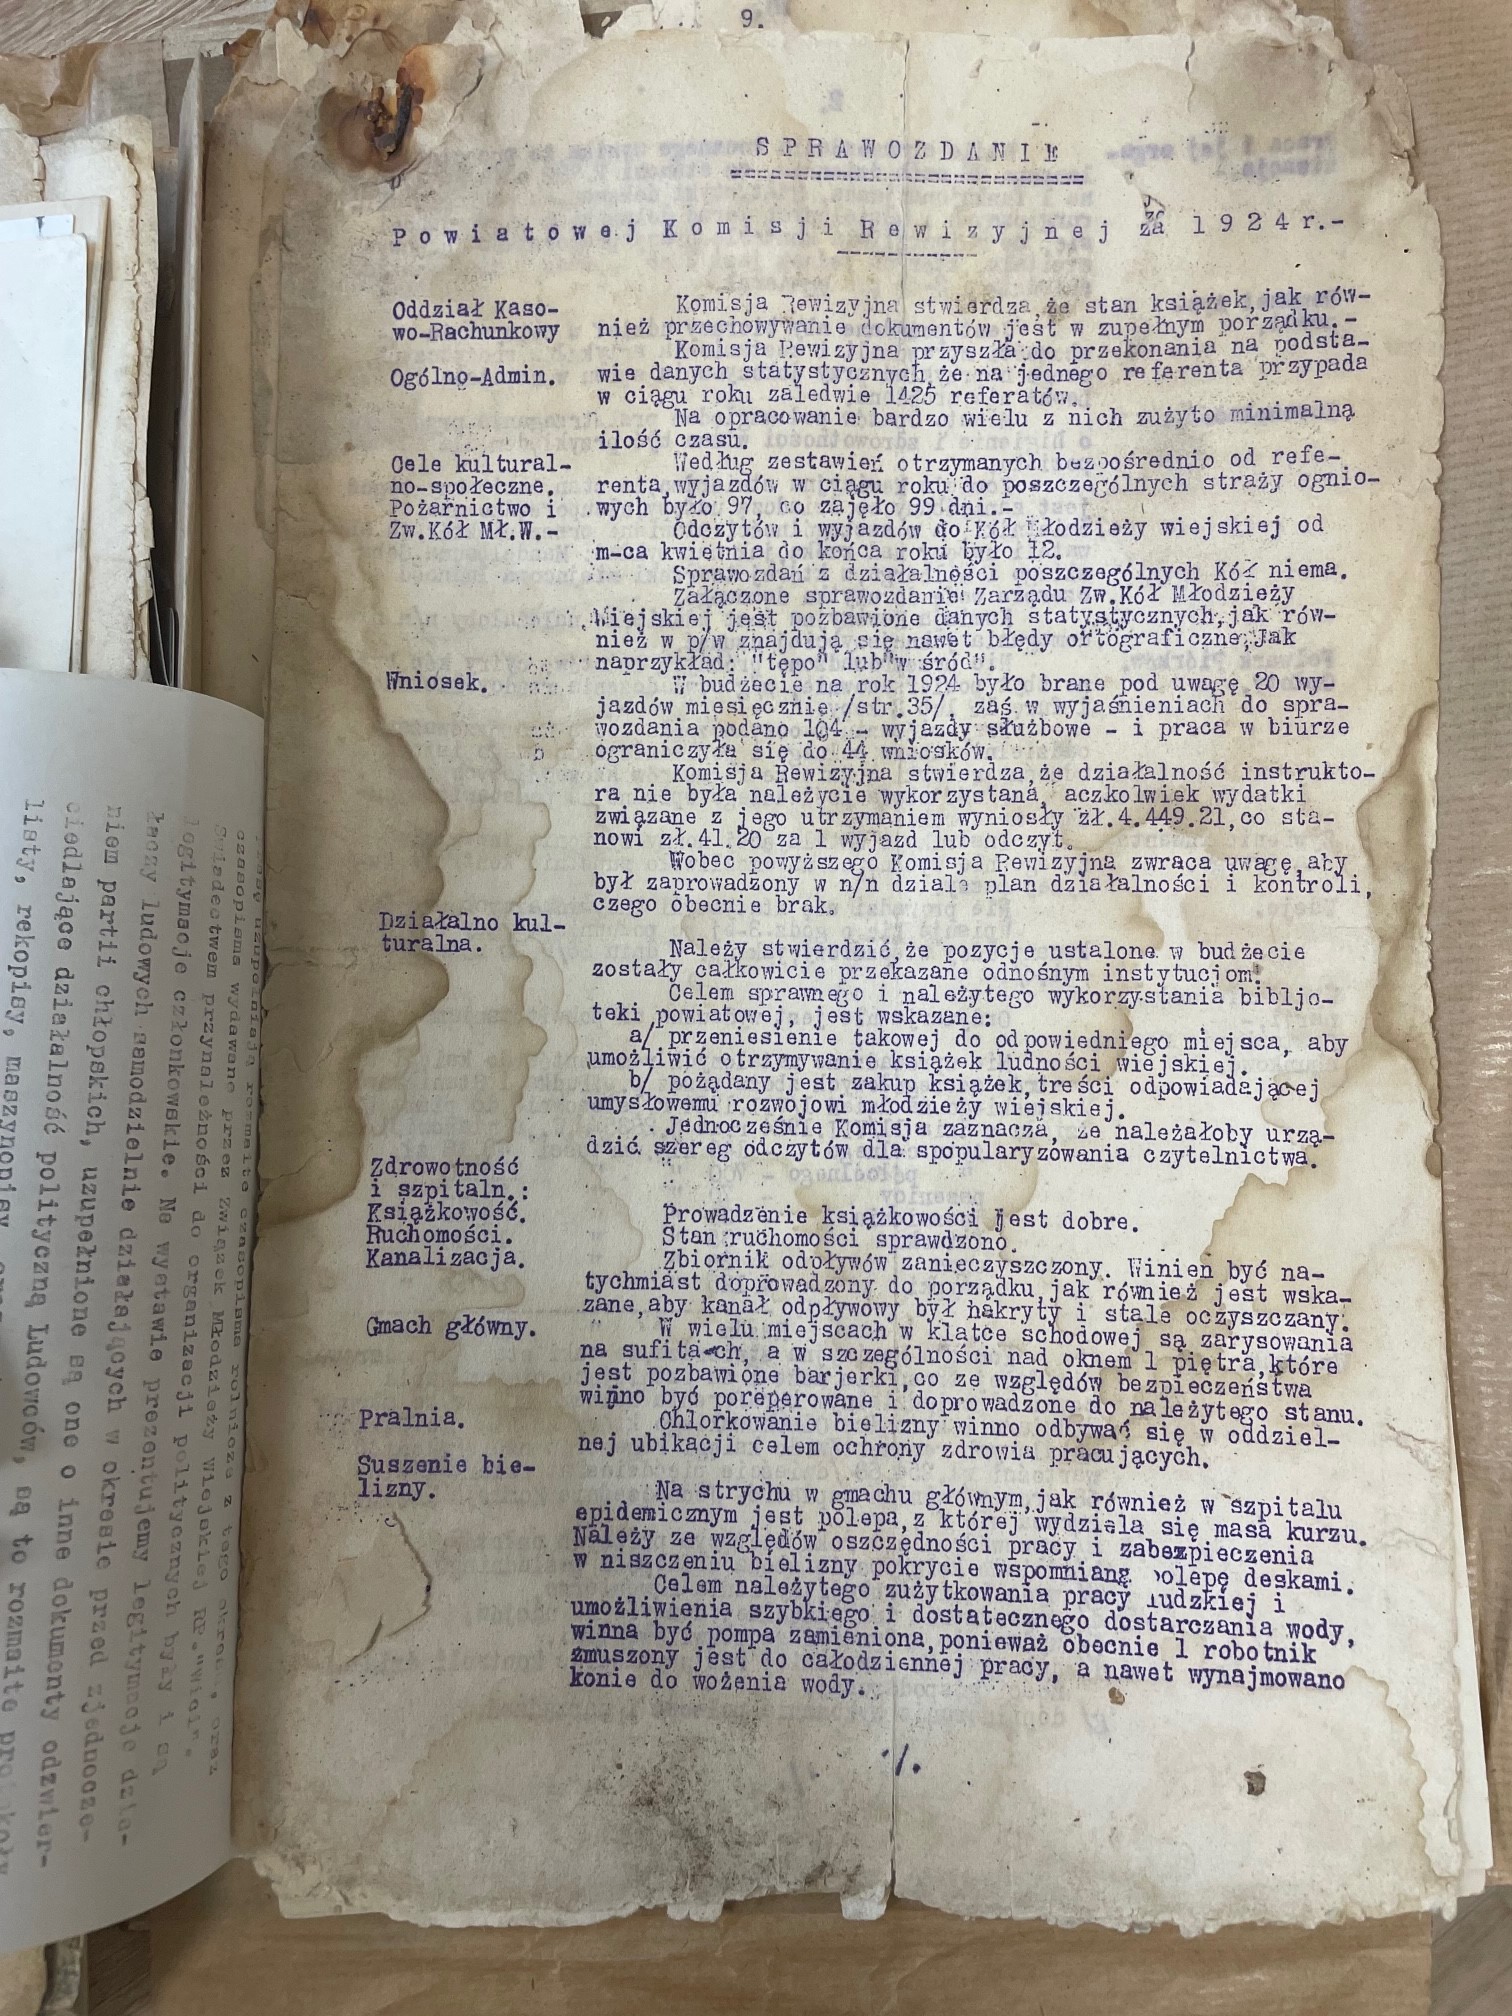 9.
SPRAWOZDANIE
Powiatowej Komisji Rewizyjnej za 1924r.-
Oddział Kaso-
wo-Rachunkowy
Komisja Rewizyjna stwierdza,że stan książek,jak rów-
nież przechowywanie dokumentów jest w zupełnym porządku.-
Ogólno-Admin.
Komisja Rewizyjna przyszła do przekonania na podsta-
wie danych statystycznych,że na jednego referenta przypada
w ciągu roku zaledwie 1425 referatów.
Na opracowanie bardzo wielu z nich zużyto minimalną
ilość czasu.
Cele kultural-
no-społeczne.
Pożarnictwo i
Zw.Kół Mł.W.-
Według zestawień otrzymanych bezpośrednio od refe-
renta,wyjazdów w ciągu roku do poszczególnych straży ognio-
wych było 97, co zajęło 99 dni.-
Odczytów i wyjazdów do Kół Młodzieży wiejskiej od
m-ca kwietnia do końca roku było 12.
Sprawozdań z działalności poszczególnych Kół niema.
Załączone sprawozdanie Zarządu Zw.Kół Młodzieży
Wiejskiej jest pozbawione danych statystycznych,jak rów-
nież w p/w znajdują się nawet błędy ortograficzne,Jak
naprzykład: "tępo" lub"w śród".
Wniosek.
W budżecie na rok 1924 było brane pod uwagę 20 wy-
jazdów miesięcznie /str.35/, zaś w wyjaśnieniach do spra-
wozdania podano 104 - wyjazdy służbowe - i praca w biurze
ograniczyła się do 44 wniosków.
Komisja Rewizyjna stwierdza,że działalność instrukto-
ra nie była należycie wykorzystana, aczkolwiek wydatki
związane z jego utrzymaniem wyniosły zł.4.449.21,co sta-
nowi zł.41.20 za 1 wyjazd lub odczyt.
Wobec powyższego Komisja Rewizyjna zwraca uwagę,aby
był zaprowadzony w n/n dziale plan działalności i kontroli,
czego obecnie brak.
Działalno kul-
turalna.
Należy stwierdzić,że pozycje ustalone w budżecie
zostały całkowicie przekazane odnośnym instytucjom.
Celem sprawnego i należytego wykorzystania bibljo-
teki powiatowej, jest wskazane:
a/ przeniesienie takowej do odpowiedniego miejsca, aby
umożliwić otrzymywanie książek ludności wiejskiej.
b/ pożądany jest zakup książek,treści odpowiadającej
umysłowemu rozwojowi młodzieży wiejskiej.
Jednocześnie Komisja zaznacza, że należałoby urzą-
dzić szereg odczytów dla spopularyzowania czytelnictwa.
Zdrowotność
i szpitaln.:
Książkowość.
Prowadzenie książkowości jest dobre.
Ruchomości.
Stan ruchomości sprawdzono.
Kanalizacja.
Zbiornik odpływów zanieczyszczony. Winien być na-
tychmiast doprowadzony do porządku,jak również jest wska-
zane,aby kanał odpływowy był nakryty i stale oczyszczany.
Gmach główny.
W wielu miejscach w klatce schodowej są zarysowania
na sufitach, a w szczególności nad oknem 1 piętra,które
jest pozbawione barjerki,co ze względów bezpieczeństwa
winno być poreperowane i doprowadzone do należytego stanu.
Pralnia.
Chlorkowanie bielizny winno odbywać się w oddziel-
nej ubikacji celem ochrony zdrowia pracujących.
Suszenie bie-
lizny.
Na strychu w gmachu głównym,jak również w szpitalu
epidemicznym jest polepa,z której wydziela się masa kurzu.
Należy ze względów oszczędności pracy i zabezpieczenia
w niszczeniu bielizny pokrycie wspomnianą polepę deskami.
Celem należytego zużytkowania pracy ludzkiej i
umożliwienia szybkiego i dostatecznego dostarczania wody,
winna być pompa zamieniona,ponieważ obecnie 1 robotnik
zmuszony jest do całodziennej pracy, a nawet wynajmowano
konie do wożenia wody.
./.
czasopisma wydawane przez Związek Młodzieży Wiejskiej RP."Wici".
legitymacje członkowskie. Na wystawie prezentujemy legitymacje dzia-
łaczy ludowych samodzielnie działających w okresie przed zjednocze-
niem partii chłopskich, uzupełnione są one o inne dokumenty odzwier-
ciedlające działalność polityczną Ludowców, są to rozmaite
listy, rękopisy, maszynopisy